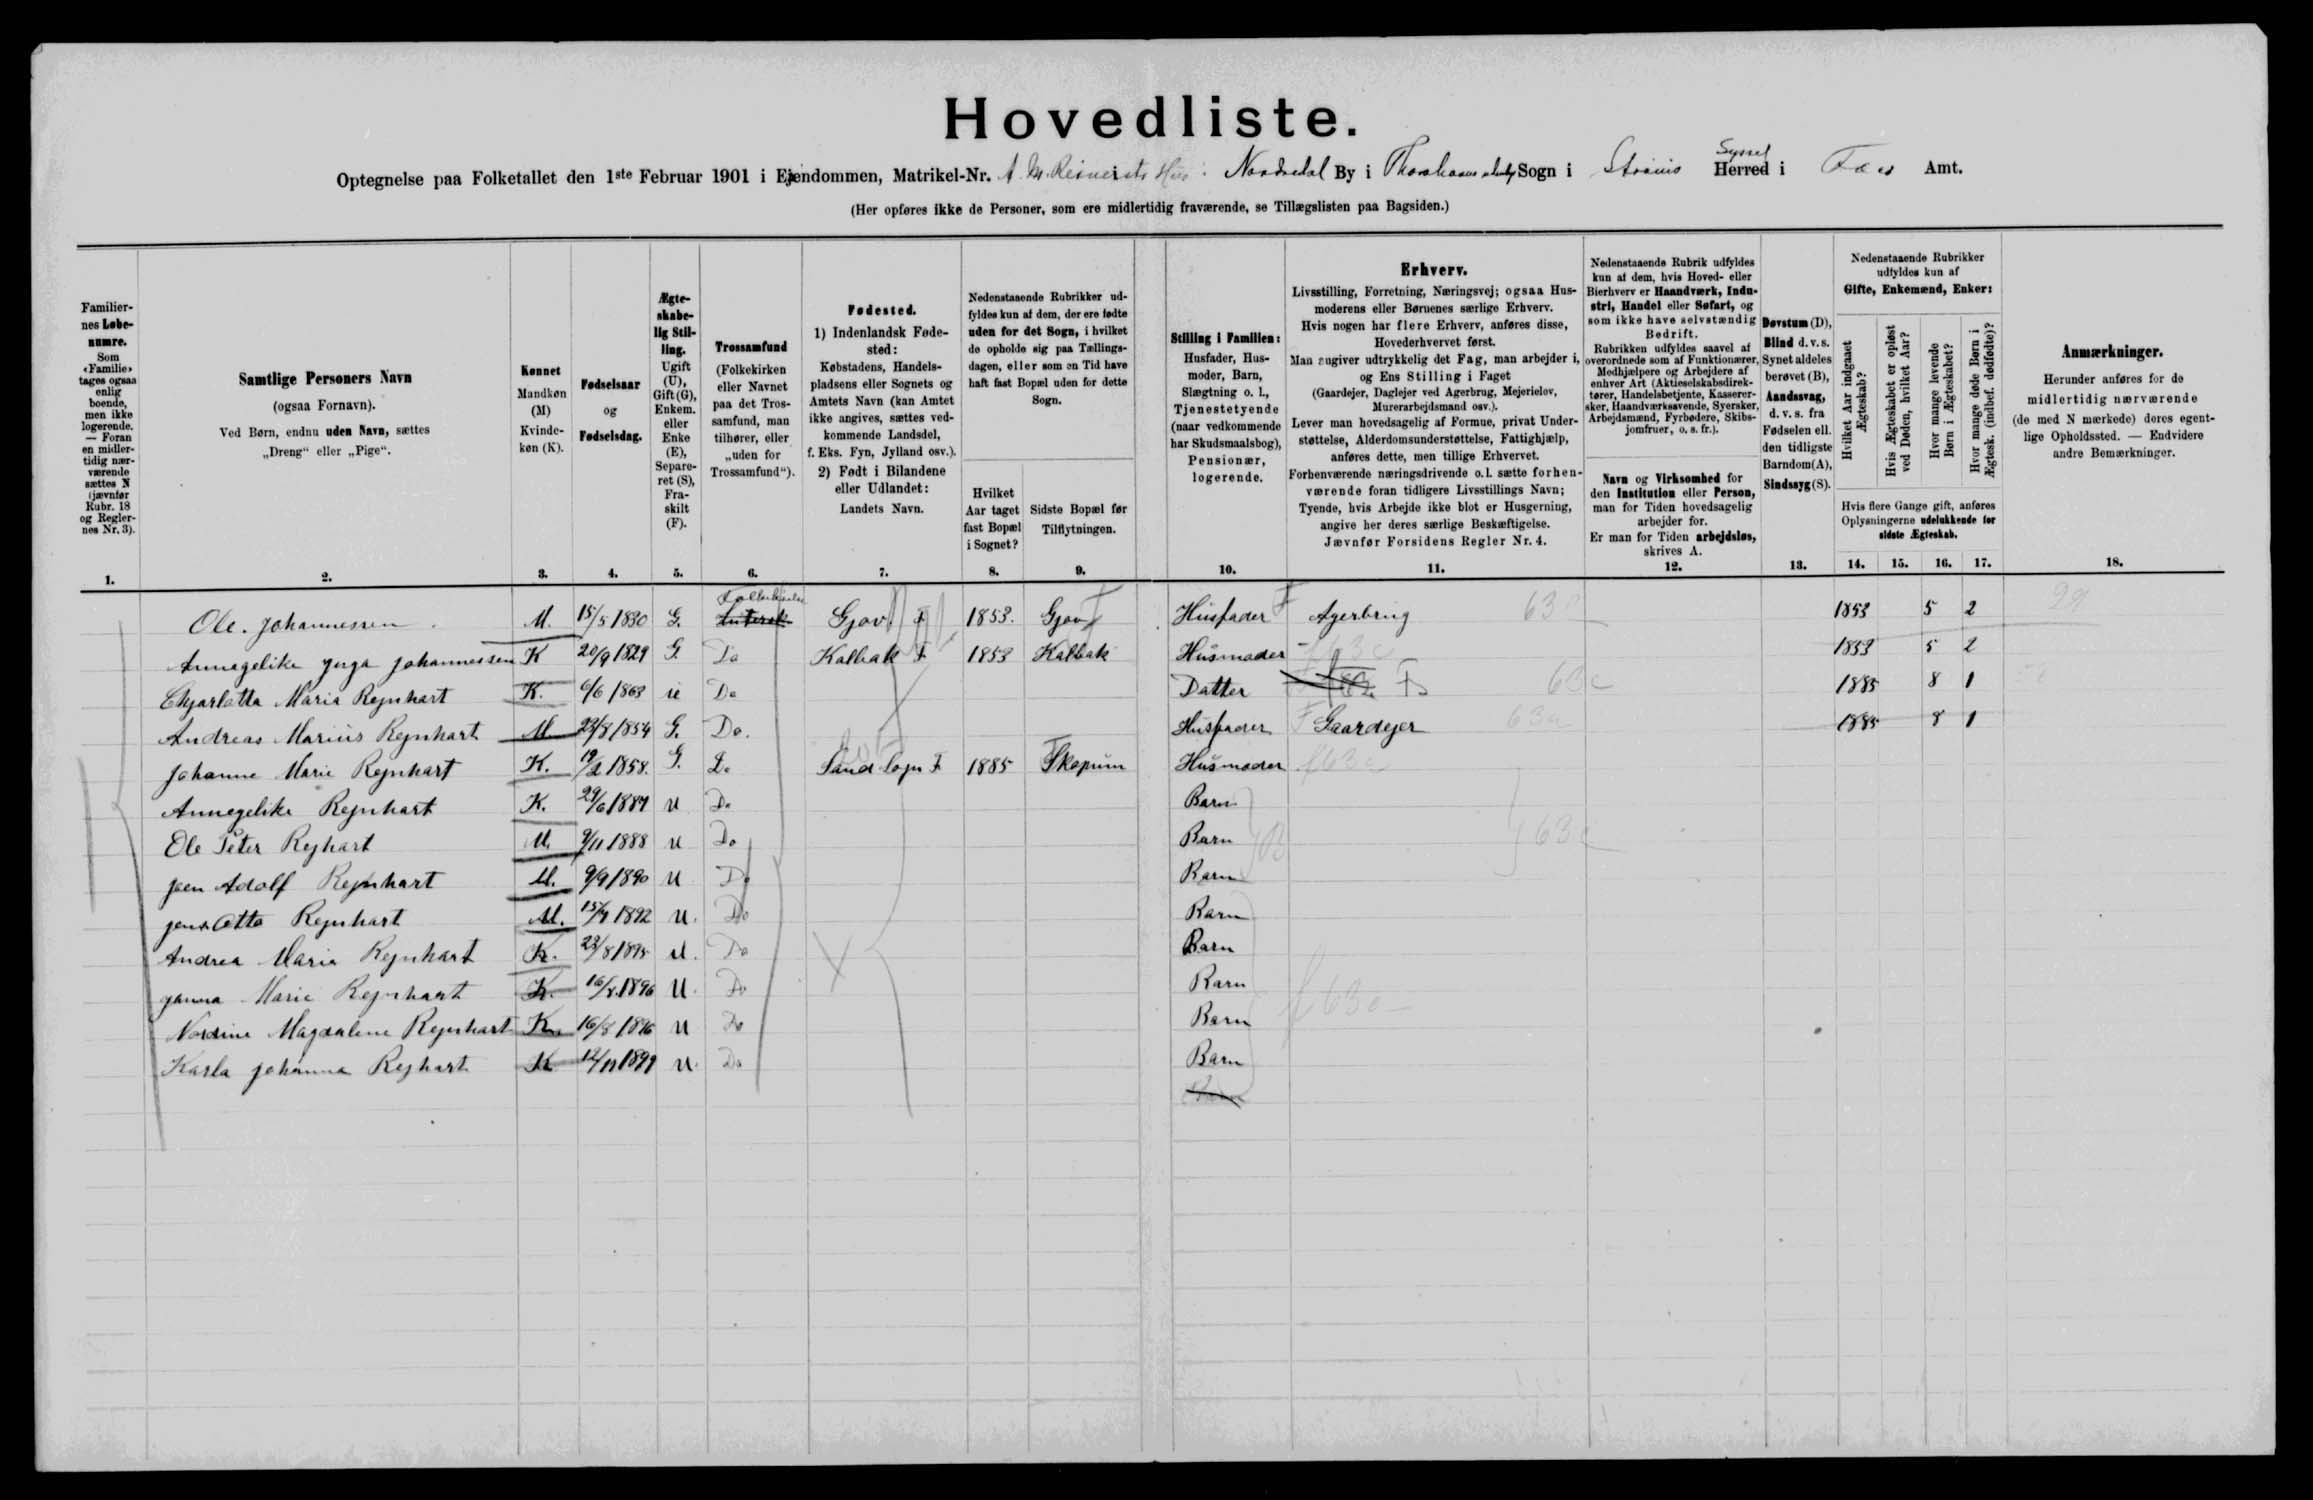 Hovedliste.
Optegnelse paa Folketallet den 1ste Februar 1901 i Ejendommen, Matrikel-Nr. A. M. Hus i Nordredal By i Thorshavns Sogn i Strømø Syssel Herred i Færø Amt.
(Her opføres ikke de Personer, som ere midlertidig fraværende, se Tillægslisten paa Bagsiden.)
Familiernes Løbenumre. Som «Familie» tages ogsaa enlig boende, men ikke logerende. — Foran en midlertidig nærværende sættes N (jævnfør Rubr. 18 og Reglernes Nr. 3).
Samtlige Personers Navn (ogsaa Fornavn). Ved Børn, endnu uden Navn, sættes „Dreng“ eller „Pige“.
Kønnet Mandkøn (M) Kvindekøn (K).
Fødselsaar og Fødselsdag.
Ægteskabelig Stilling. Ugift (U), Gift (G), Enkem. eller Enke (E), Separeret (S), Fraskilt (F).
Trossamfund (Folkekirken eller Navnet paa det Trossamfund, man tilhører, eller „uden for Trossamfund“).
Fødested. 1) Indenlandsk Fødested: Købstadens, Handelspladsens eller Sognets og Amtets Navn (kan Amtet ikke angives, sættes vedkommende Landsdel, f. Eks. Fyn, Jylland osv.). 2) Født i Bilandene eller Udlandet: Landets Navn.
Nedenstaaende Rubrikker udfyldes kun af dem, der ere fødte uden for det Sogn, i hvilket de opholde sig paa Tællingsdagen, eller som en Tid have haft fast Bopæl uden for dette Sogn.
Hvilket Aar taget fast Bopæl i Sognet?
Sidste Bopæl før Tilflytningen.
Stilling i Familien: Husfader, Husmoder, Barn, Slægtning o. l., Tjenestetyende (naar vedkommende har Skudsmaalsbog), Pensionær, logerende.
Erhverv.
Livsstilling, Forretning, Næringsvej; ogsaa Husmoderens eller Børnenes særlige Erhverv.
Hvis nogen har flere Erhverv, anføres disse, Hovederhvervet først.
Man angiver udtrykkelig det Fag, man arbejder i, og Ens Stilling i Faget
(Gaardejer, Daglejer ved Agerbrug, Mejerielev, Murerarbejdsmand osv.).
Lever man hovedsagelig af Formue, privat Understøttelse, Alderdomsunderstøttelse, Fattighjælp, anføres dette, men tillige Erhvervet.
Forhenværende næringsdrivende o. l. sætte forhenværende foran tidligere Livsstillings Navn;
Tyende, hvis Arbejde ikke blot er Husgerning, angive her deres særlige Beskæftigelse.
Jævnfør Forsidens Regler Nr. 4.
Nedenstaaende Rubrik udfyldes kun af dem, hvis Hoved- eller Bierhverv er Haandværk, Industri, Handel eller Søfart, og som ikke have selvstændig Bedrift.
Rubrikken udfyldes saavel af overordnede som af Funktionærer, Medhjælpere og Arbejdere af enhver Art (Aktieselskabsdirektører, Handelsbetjente, Kasserersker, Haandværkssvende, Syersker, Arbejdsmænd, Fyrbødere, Skibsjomfruer, o. s. fr.).
Navn og Virksomhed for den Institution eller Person, man for Tiden hovedsagelig arbejder for.
Er man for Tiden arbejdsløs, skrives A.
Døvstum (D), Blind d. v. s. Synet aldeles berøvet (B), Aandssvag, d. v. s. fra Fødselen ell. den tidligste Barndom (A), Sindssyg (S).
Nedenstaaende Rubrikker udfyldes kun af Gifte, Enkemænd, Enker:
Hvilket Aar indgaaet Ægteskab?
Hvis Ægteskabet er opløst ved Døden, hvilket Aar?
Hvor mange levende Børn i Ægteskabet?
Hvor mange døde Børn i Ægtesk. (indbef. dødfødte)?
Hvis flere Gange gift, anføres Oplysningerne udelukkende for sidste Ægteskab.
Anmærkninger.
Herunder anføres for de midlertidig nærværende (de med N mærkede) deres egentlige Opholdssted. — Endvidere andre Bemærkninger.
1. 2. 3. 4. 5. 6. 7. 8. 9. 10. 11. 12. 13. 14. 15. 16. 17. 18.
Ole. Johannessen M. 15/5 1830 G. Folkekirke Luthersk Gjov F 1853. Gjov Husfader F Agerbrug 63 1853 5 2 29
Annagelika Johannessen K 20/9 1829 G. Do Kalbak F 1853 Kalbak Husmoder f63c 1853 5 2
Chjarlotta Maria Rejnhart K. 6/6 1863 u Do Datter 63c 1885 8 1
Andreas Marius Rejnhart M 23/8 1854 G. Do. Husfader F Gaardejer 63a 1885 8 1
Johanne Marie Rejnhart K. 19/2 1858. G. Do Sand Sogn F 1885 Skopun Husmoder f63a
Annegelika Rejnhart K. 29/6 1887 u Do Barn
Ole Peter Rejhart M. 9/11 1888 u Do Barn 63c
Joen Adolf Rejnhart M. 9/9 1890 U Do Barn
Jens Otto Rejnhart M. 15/7 1892 U. Do Barn
Andrea Maria Rejnhart K. 23/8 1895 U. Do Barn
Janna Marie Rejnhart K. 16/8 1896 U. Do Barn f63a
Nordine Magdalene Rejnhart K. 16/8 1896 U Do Barn
Karla Johanna Rejhart K 12/11 1899 U. Do Barn